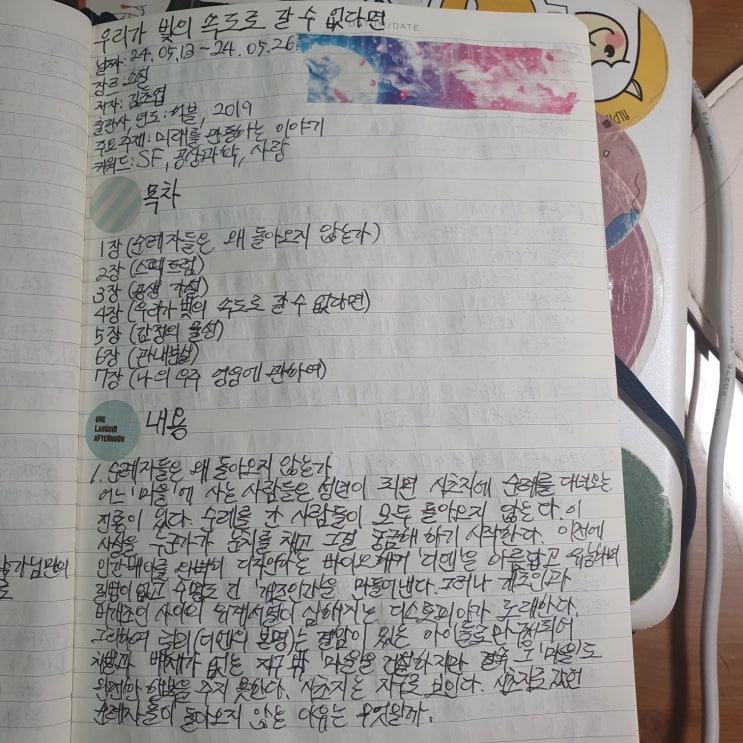 우리가 빛의 속도로 갈 수 없다면
/DATE
날짜: 24.05.13 ~ 24.05.26
장르: 소설
저자: 김초엽
출판사, 연도: 허블, 2019
주요주제: 미래를 관통하는 이야기
키워드: SF, 공상과학, 사랑
목차
1장 (순례자들은 왜 돌아오지 않는가)
2장 (스펙트럼)
3장 (공생 가설)
4장 (우리가 빛의 속도로 갈 수 없다면)
5장 (감정의 물성)
6장 (관내분실)
7장 (나의 우주 영웅에 관하여)
ONE
LANGUID
AFTERNOON
내용
1. 순례자들은 왜 돌아오지 않는가
어느 '마을'에 사는 사람들은 성년이 되면 시초지에 순례를 다녀오는
전통이 있다. 순례를 간 사람들이 모두 돌아오지 않는다. 이
사실을 누군가가 눈치를 채고 그걸 궁금해 하기 시작한다. 이전에
인간배아를 디자인하는 바이오해커 '디엔'은 아름답고 유능하며
질병이 없고 수명도 긴 '개조인'을 만들어낸다. 그러나 개조인과
비개조인 사이의 디스토피아가 도래한다.
그리하여 (디엔의 본명)는 결함이 있는 아이들로만
차별과 배제가 없는 지구 밖 '마을'을 건설하지만 결국 그 '마을'도
행복을 주지 못한다. 시초지는 지구로 보인다. 시초지로 갔던
순례자들이 돌아오지 않는 이유는 무엇일까.